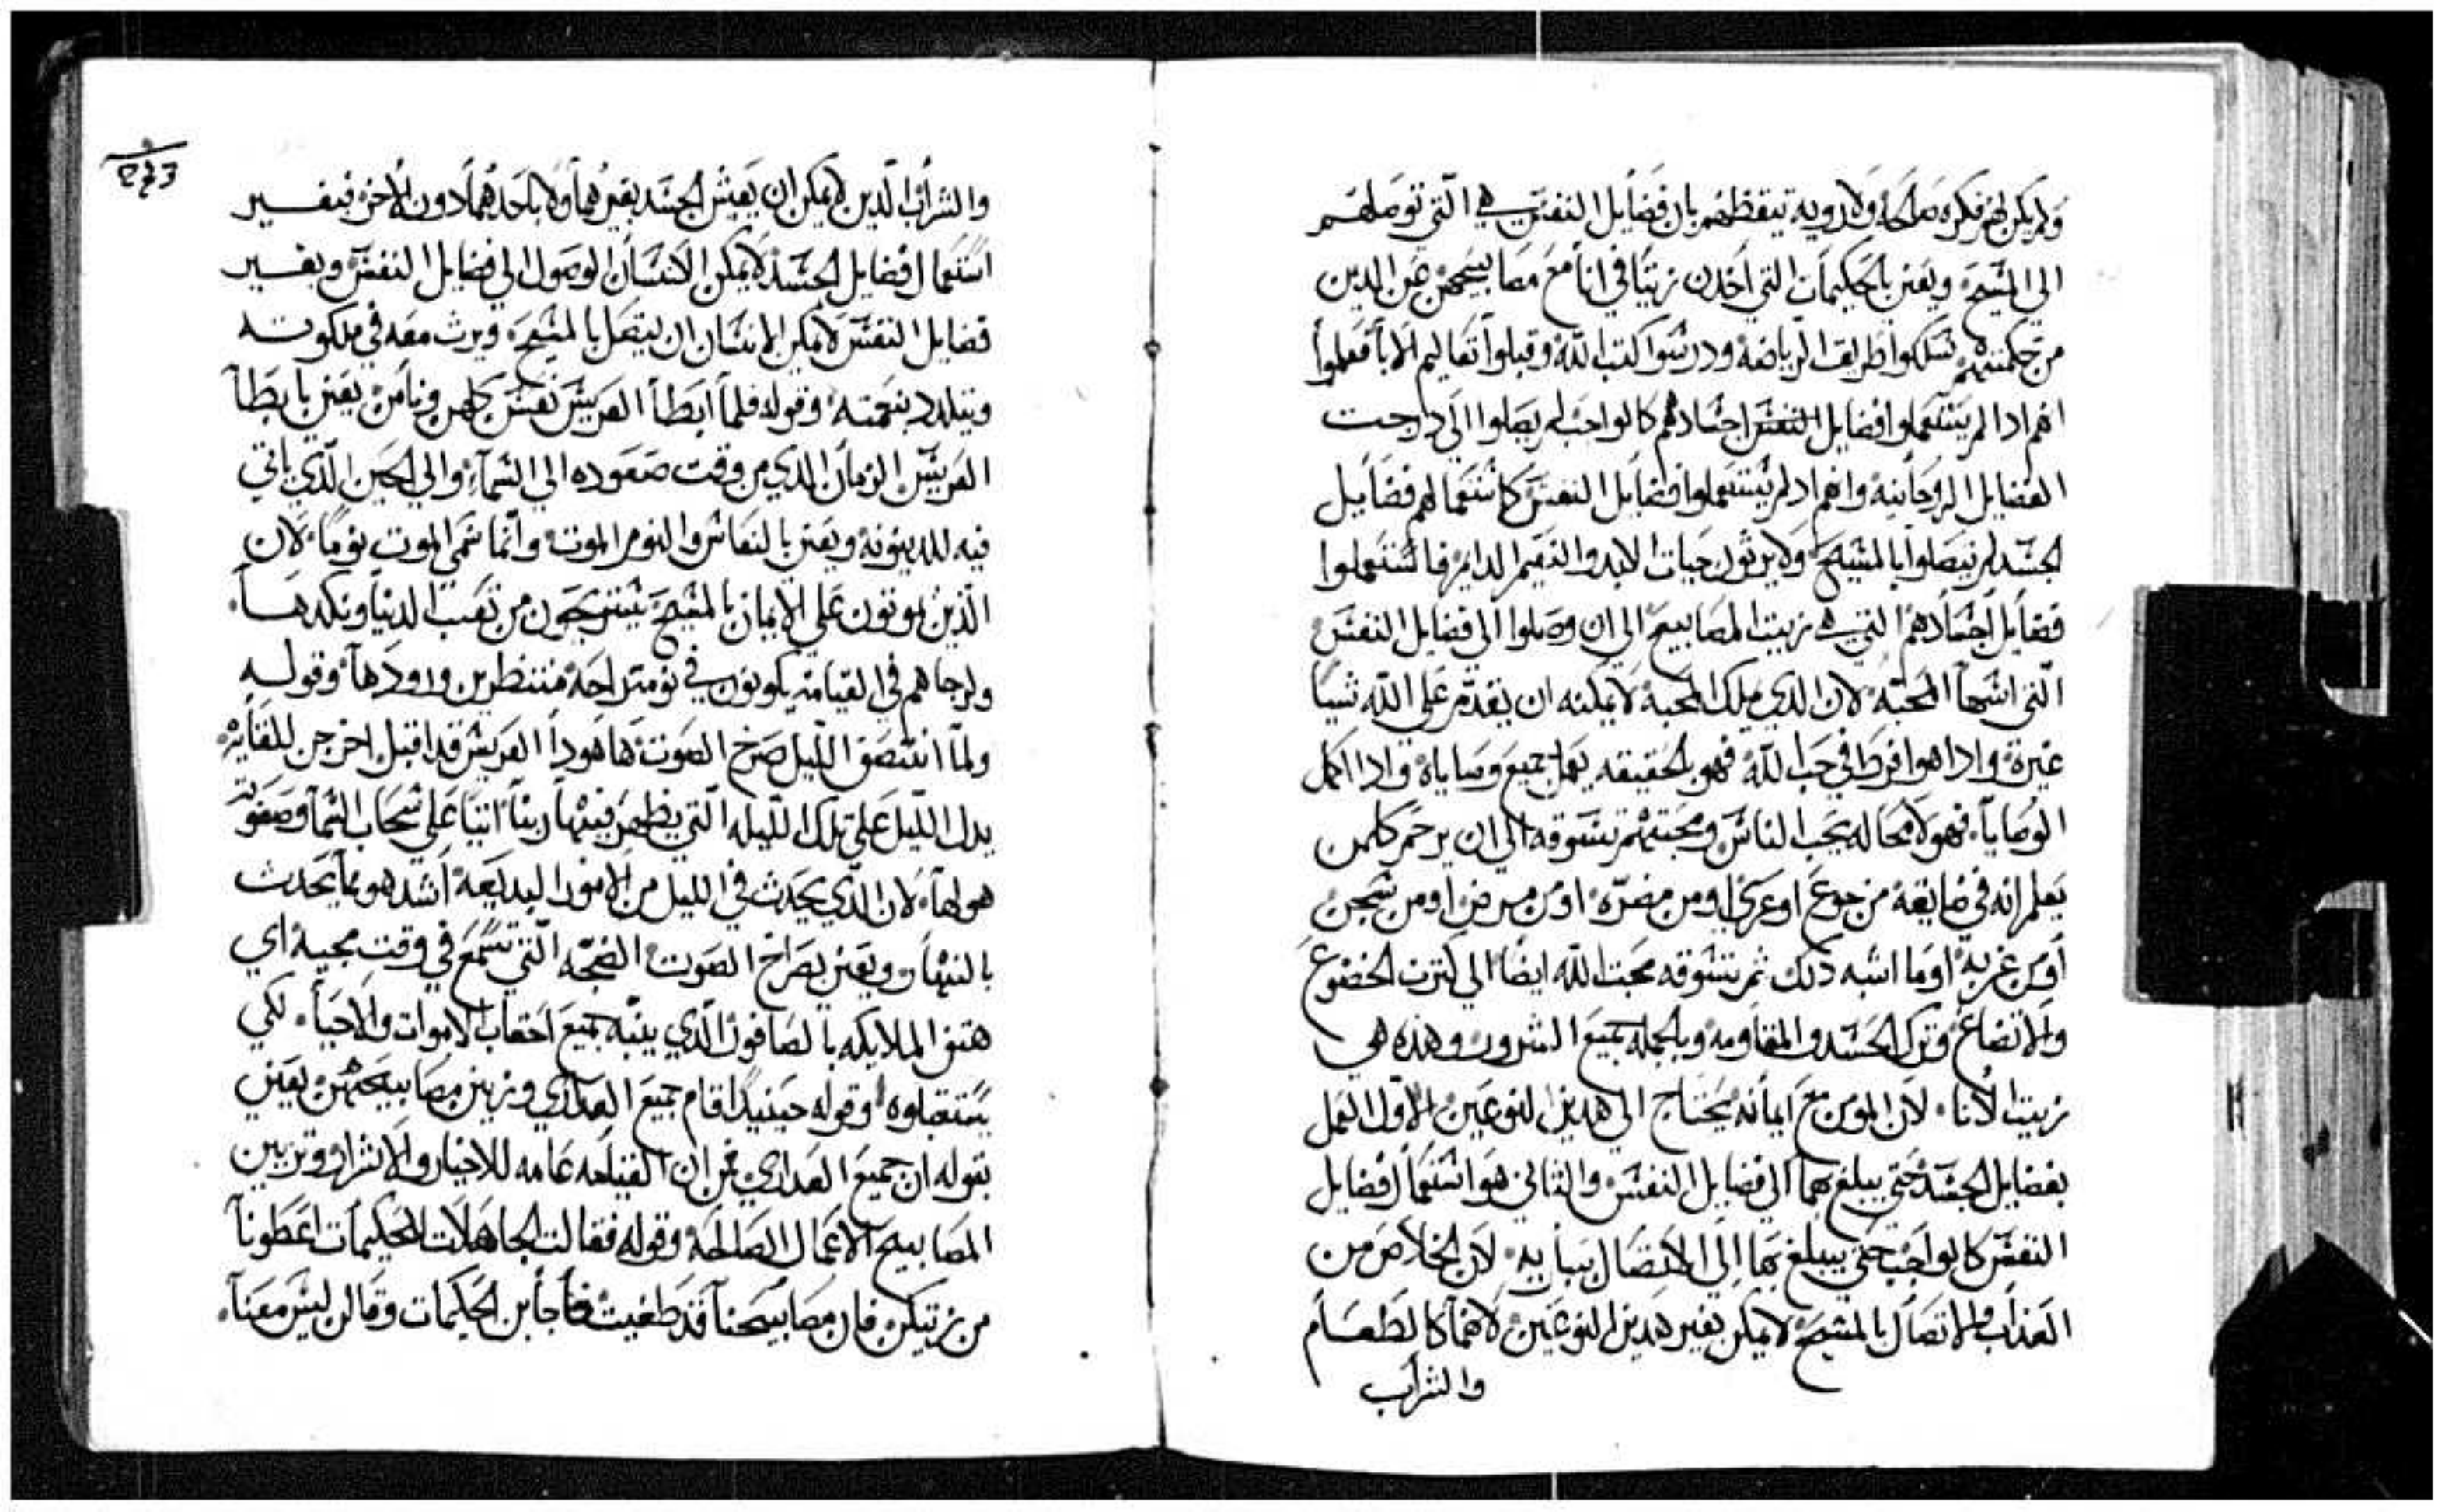 ولم يكن لهم فكره صالحه ولا رويه تيقظهم بان فضايل النفس هي التي توصلهم
الي المسيح ويعني بالحكيمات التي اخذن زيتا في انا مع مصابيحهن عن الدين
من حكمتهم سلكوا طريق الرياضه ودرسوا كتب الله وقبلوا تعاليم الابا فعلموا
انهم ادا لم يستعملوا فضايل النفس اجسادهم كالواجب لم يصلوا الي درجت
الفضايل الروحانيه وانهم اد لم يستعملوا فضايل النفس كاستعمالهم فضايل
الجسد لم يتصلوا بالمسيح ولا يرثون حيات الابد والنعيم الدايم فاستعملوا
فضايل اجسادهم التي هي زيت المصابيح الي ان وصلوا الي فضايل النفس
التي اسها المحبه لان الدي ملك المحبه لا يمكنه ان يقدم علي الله شيا
غيره وادا هو افرط في حب الله فهو بالحقيقه يعمل جميع وصاياه وادا اكمل
الوصايا فهو لا محاله يحب الناس ومحبتهم تسوقه الي ان يرحم كلمن
يعلم انه في ضايقه من جوع او عري او من مضره او من مرض او من سجن
او من غربه او ما اشبه دلك ثم تسوقه محبت الله ايضا الي كترت الخضوع
والاتضاع وترك الحسد والمقاومه وبالجمله جميع الشرور وهذه هي
زيت الانا لان المومن مع ايمانه يحتاج الي هدين النوعين الاول العمل
بفضايل الجسد حتي يبلغ بهما الي فضايل النفس والثاني هو استعمال فضايل
النفس كالواجب حتي يبلغ بها الي الاتصال بباريه لان الخلاص من
العذاب والاتصال بالمسيح لا يمكن بغير هدين النوعين لانهما كالطعام
والشراب
والشراب الدين لا يمكن ان يعيش الجسد بغيرهما ولا باحدهما دون الاخر فبغير
استعمال فضايل الجسد لا يمكن الانسان الوصول الي فضايل النفس وبغير
فضايل النفس لا يمكن الانسان ان يتصل بالمسيح ويرث معه في ملكوته
ويتلدد بنعمته وقوله فلما ابطا العريس نعسن كلهن ونامن يعني بابطا
العريس الزمان الدي من وقت صعوده الي السما والي الحين الذي ياتي
فيه للدينونه ويعني بالنعاس والنوم الموت وانما سمي الموت نوما لان
الذين يموتون علي الايمان بالمسيح يستريحون من تعب الدنيا ونكدها
ولرجاهم في القيامه يكونون في نومت راحه منتظرين ورودها وقوله
ولما انتصف الليل صرخ الصوت ها هودا العريس قد اقبل اخرجن للقايه
يدل الليل علي تلك الليله التي يظهر فيها ربنا اتيا علي سحاب السما وصعوبة
هولها لان الذي يحدث في الليل من الامور البديعه اشد هو مما يحدث
بالنهار ويعني بصراخ الصوت الضجه التي تسمع في وقت مجيه اي
هتف الملايكه بالصافور الذي ينبه جميع احقاب الاموات والاحيا لكي
يستقبلوه وقوله حينيدا قام جميع العداري وزين مصابيحهن يعني
بقوله ان جميع العداري قمن ان القيامه عامه للاخيار والاشرار وتزيين
المصابيح الاعمال الصالحه وقوله فقالت الجاهلات للحكيمات اعطونا
من زيتكن فان مصابيحنا قد طفيت فاجابن الحكيمات وقالن ليس معنا